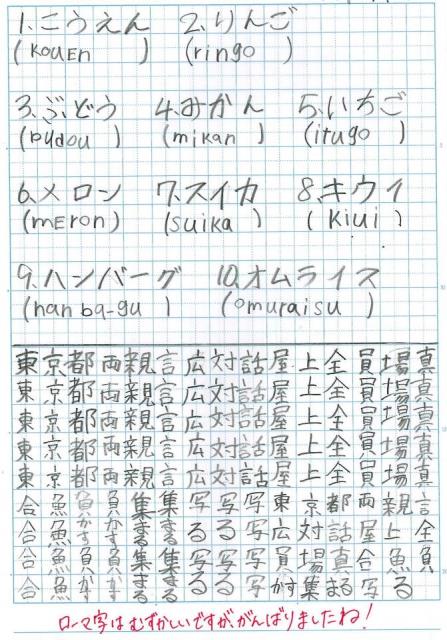 1.こうえん 2.りんご
(kouEn) (ringo)
3.ぶどう 4.みかん 5.いちご
(budou) (mikan) (itugo)
6.メロン 7.スイカ 8.キウイ
(mEron) (suika) (kiui)
9.ハンバーグ 10.オムライス
(hanba-gu) (omuraisu)
東京都両親言広対話屋上全員場真
東京都両親言広対話屋上全員場真
東京都両親言広対話屋上全員場真
東京都両親言広対話屋上全員場真
東京都両親言広対話屋上全員場真
合魚負負集集写写写東京都両親言
合魚かすかすまるまるるる写広対話屋上全
合魚負負集集写写写員場真合魚負
合魚かすかすまるまるるる写かす集まる写る
ローマ字はむずかしいですががんばりましたね!